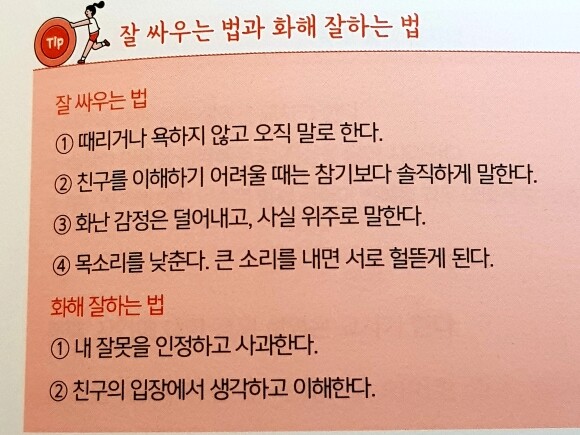 TIP
잘 싸우는 법과 화해 잘하는 법
잘 싸우는 법
① 때리거나 욕하지 않고 오직 말로 한다.
② 친구를 이해하기 어려울 때는 참기보다 솔직하게 말한다.
③ 화난 감정은 덜어내고, 사실 위주로 말한다.
④ 목소리를 낮춘다. 큰 소리를 내면 서로 헐뜯게 된다.
화해 잘하는 법
① 내 잘못을 인정하고 사과한다.
② 친구의 입장에서 생각하고 이해한다.